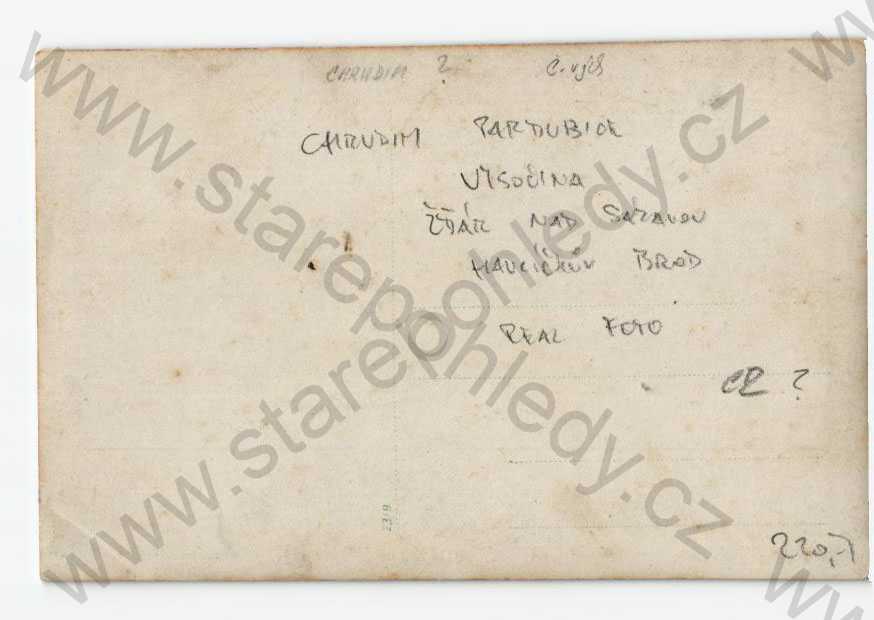 CHRUDIM ? č. vých
CHRUDIM PARDUBICE
VYSOČINA
ŽĎÁR NAD SÁZAVOU
HAVLÍČKŮV BROD
REAL FOTO
ČR ?
2319
220,-
www.starepohledy.cz
www.starepohledy.cz